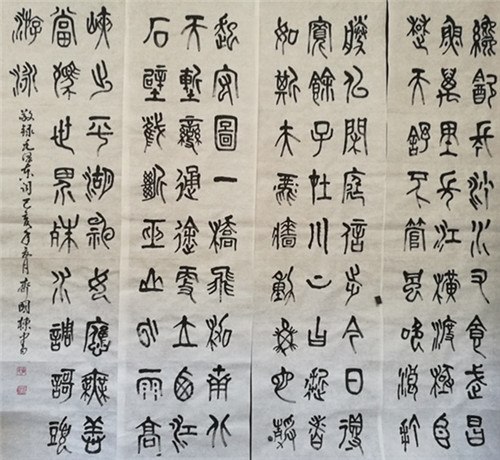 纔飲長沙水又食武昌
魚萬里長江橫渡極目
楚天舒不管風吹浪打
勝似閑庭信步今日得
寬餘子在川上曰逝者
如斯夫風檣動龜蛇靜
起宏圖一橋飛架南北
天塹變通途更立西江
石壁截斷巫山雲雨高
峽出平湖神女應無恙
當驚世界殊水調歌頭
游泳
敬録毛澤東詞己亥年月齊國棟書